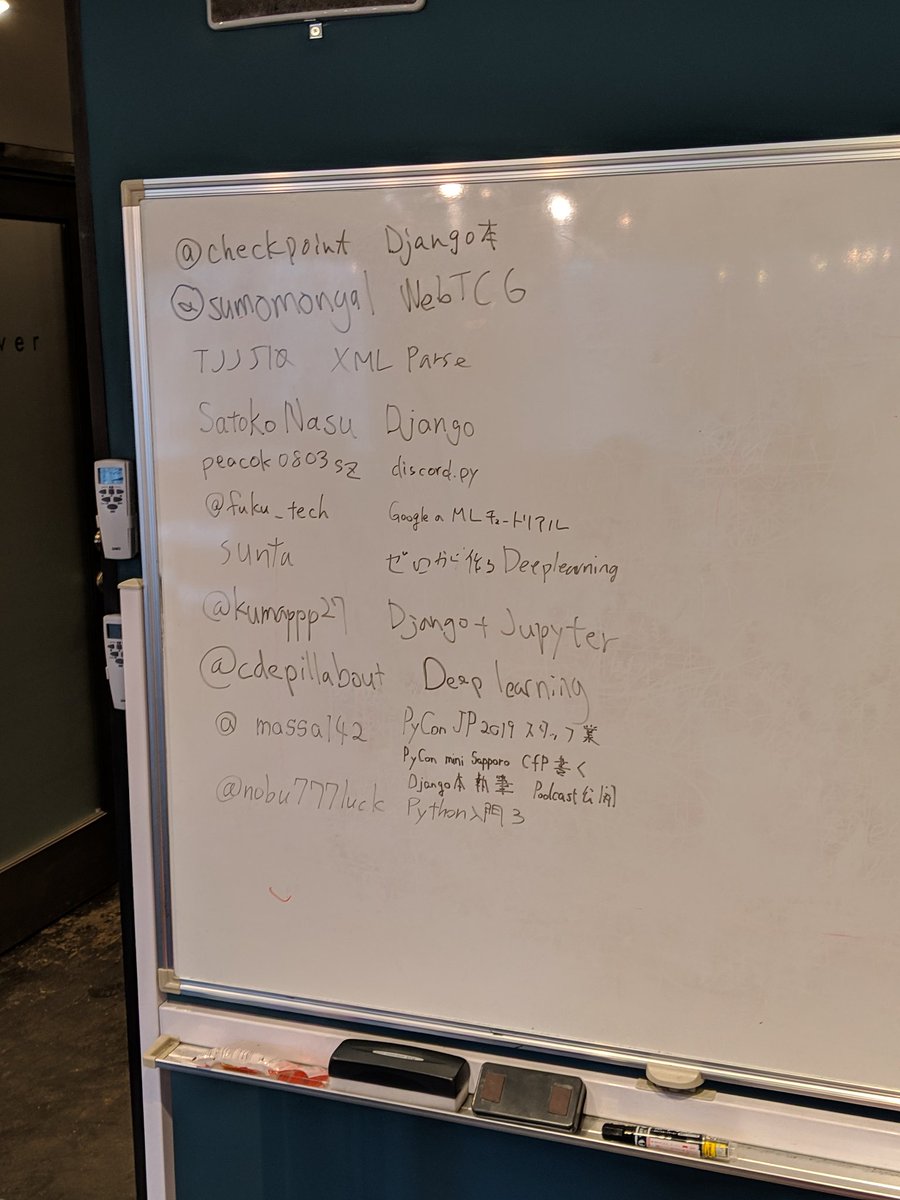 ver
@checkpoint Django本
@sumomonga1 WebTCG
XML Parse
Satoko Nasu Django
peacok0803sz discord.py
@fuku_tech GoogleのMLチュートリアル
sunta ゼロから作るDeeplearning
@kumappp27 Django+Jupyter
@cdepillabout Deep learning
@massa142 PyCon JP 2019 スタッフ業
PyCon mini Sapporo CfP書く
Django本 執筆 Podcast公開
@nobu777luck Python入門3